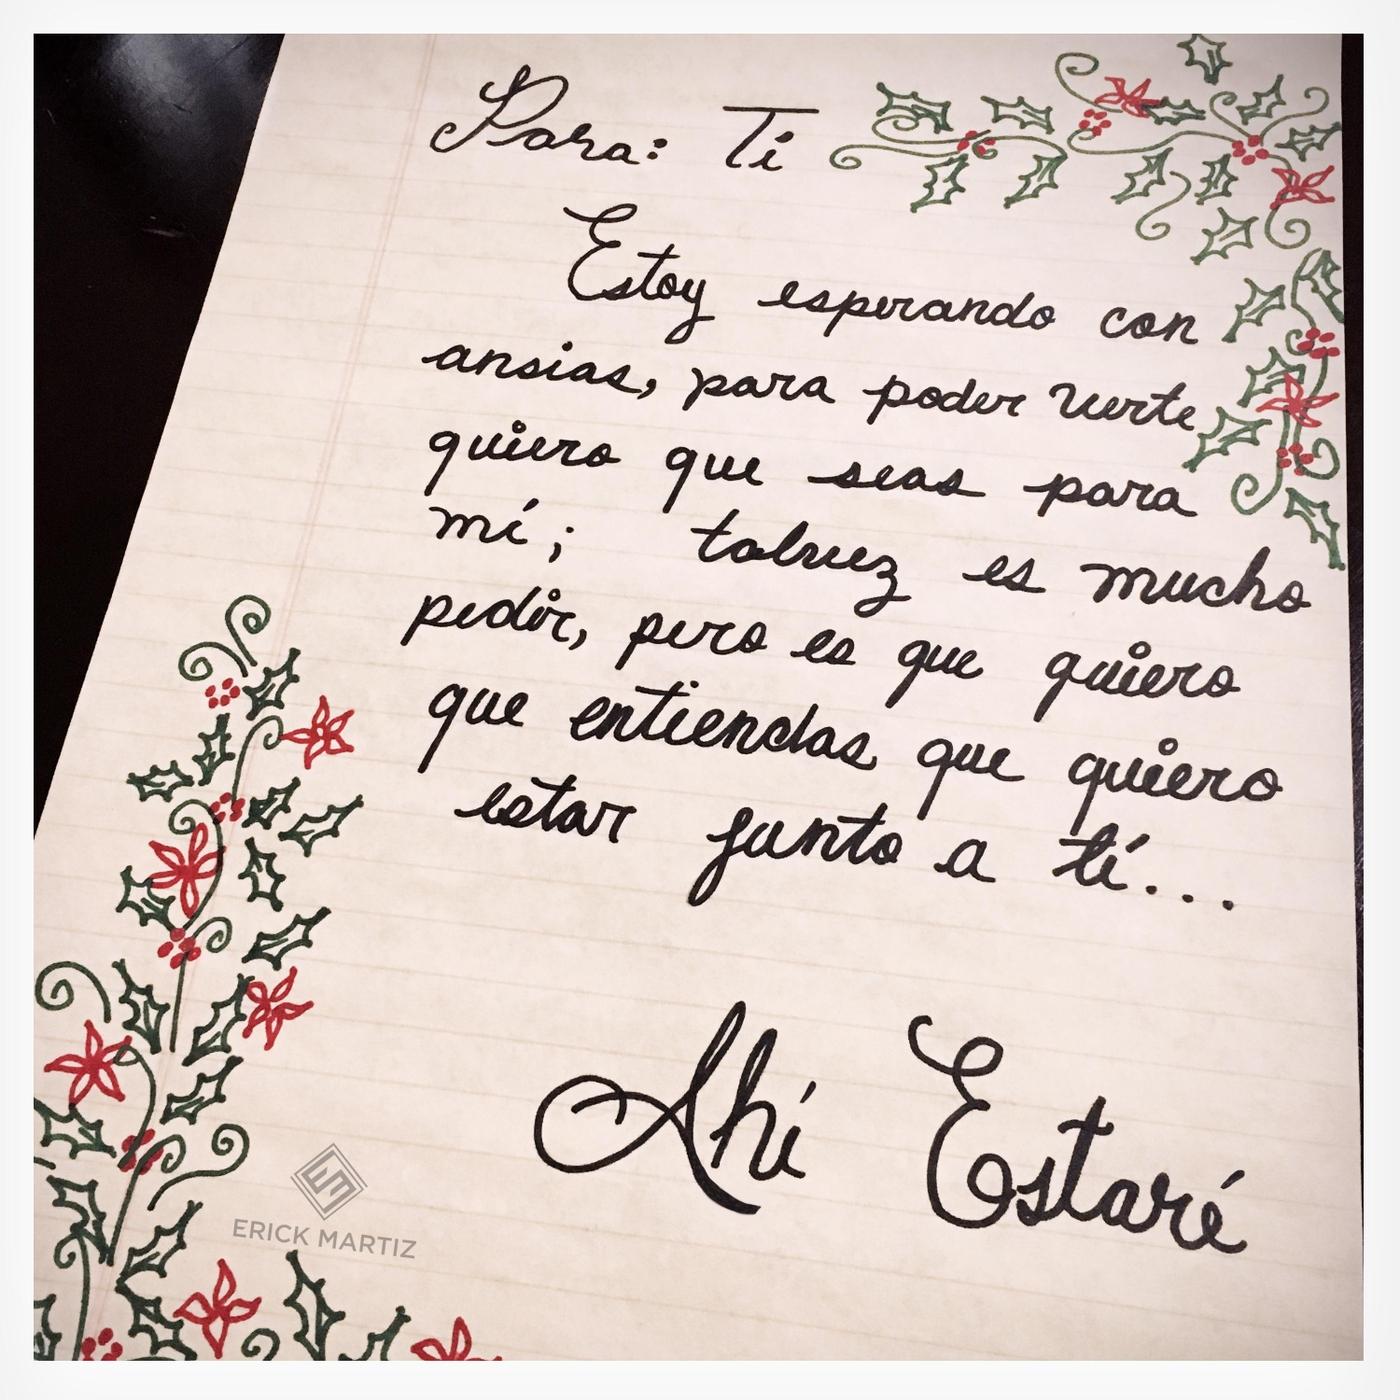 Para: Ti
Estoy esperando con
ansias, para poder verte
quiero que seas para
mí; talvez es mucho
pedir, pero es que quiero
que entiendas que quiero
estar junto a tí...
Ahí Estaré
ERICK MARTIZ